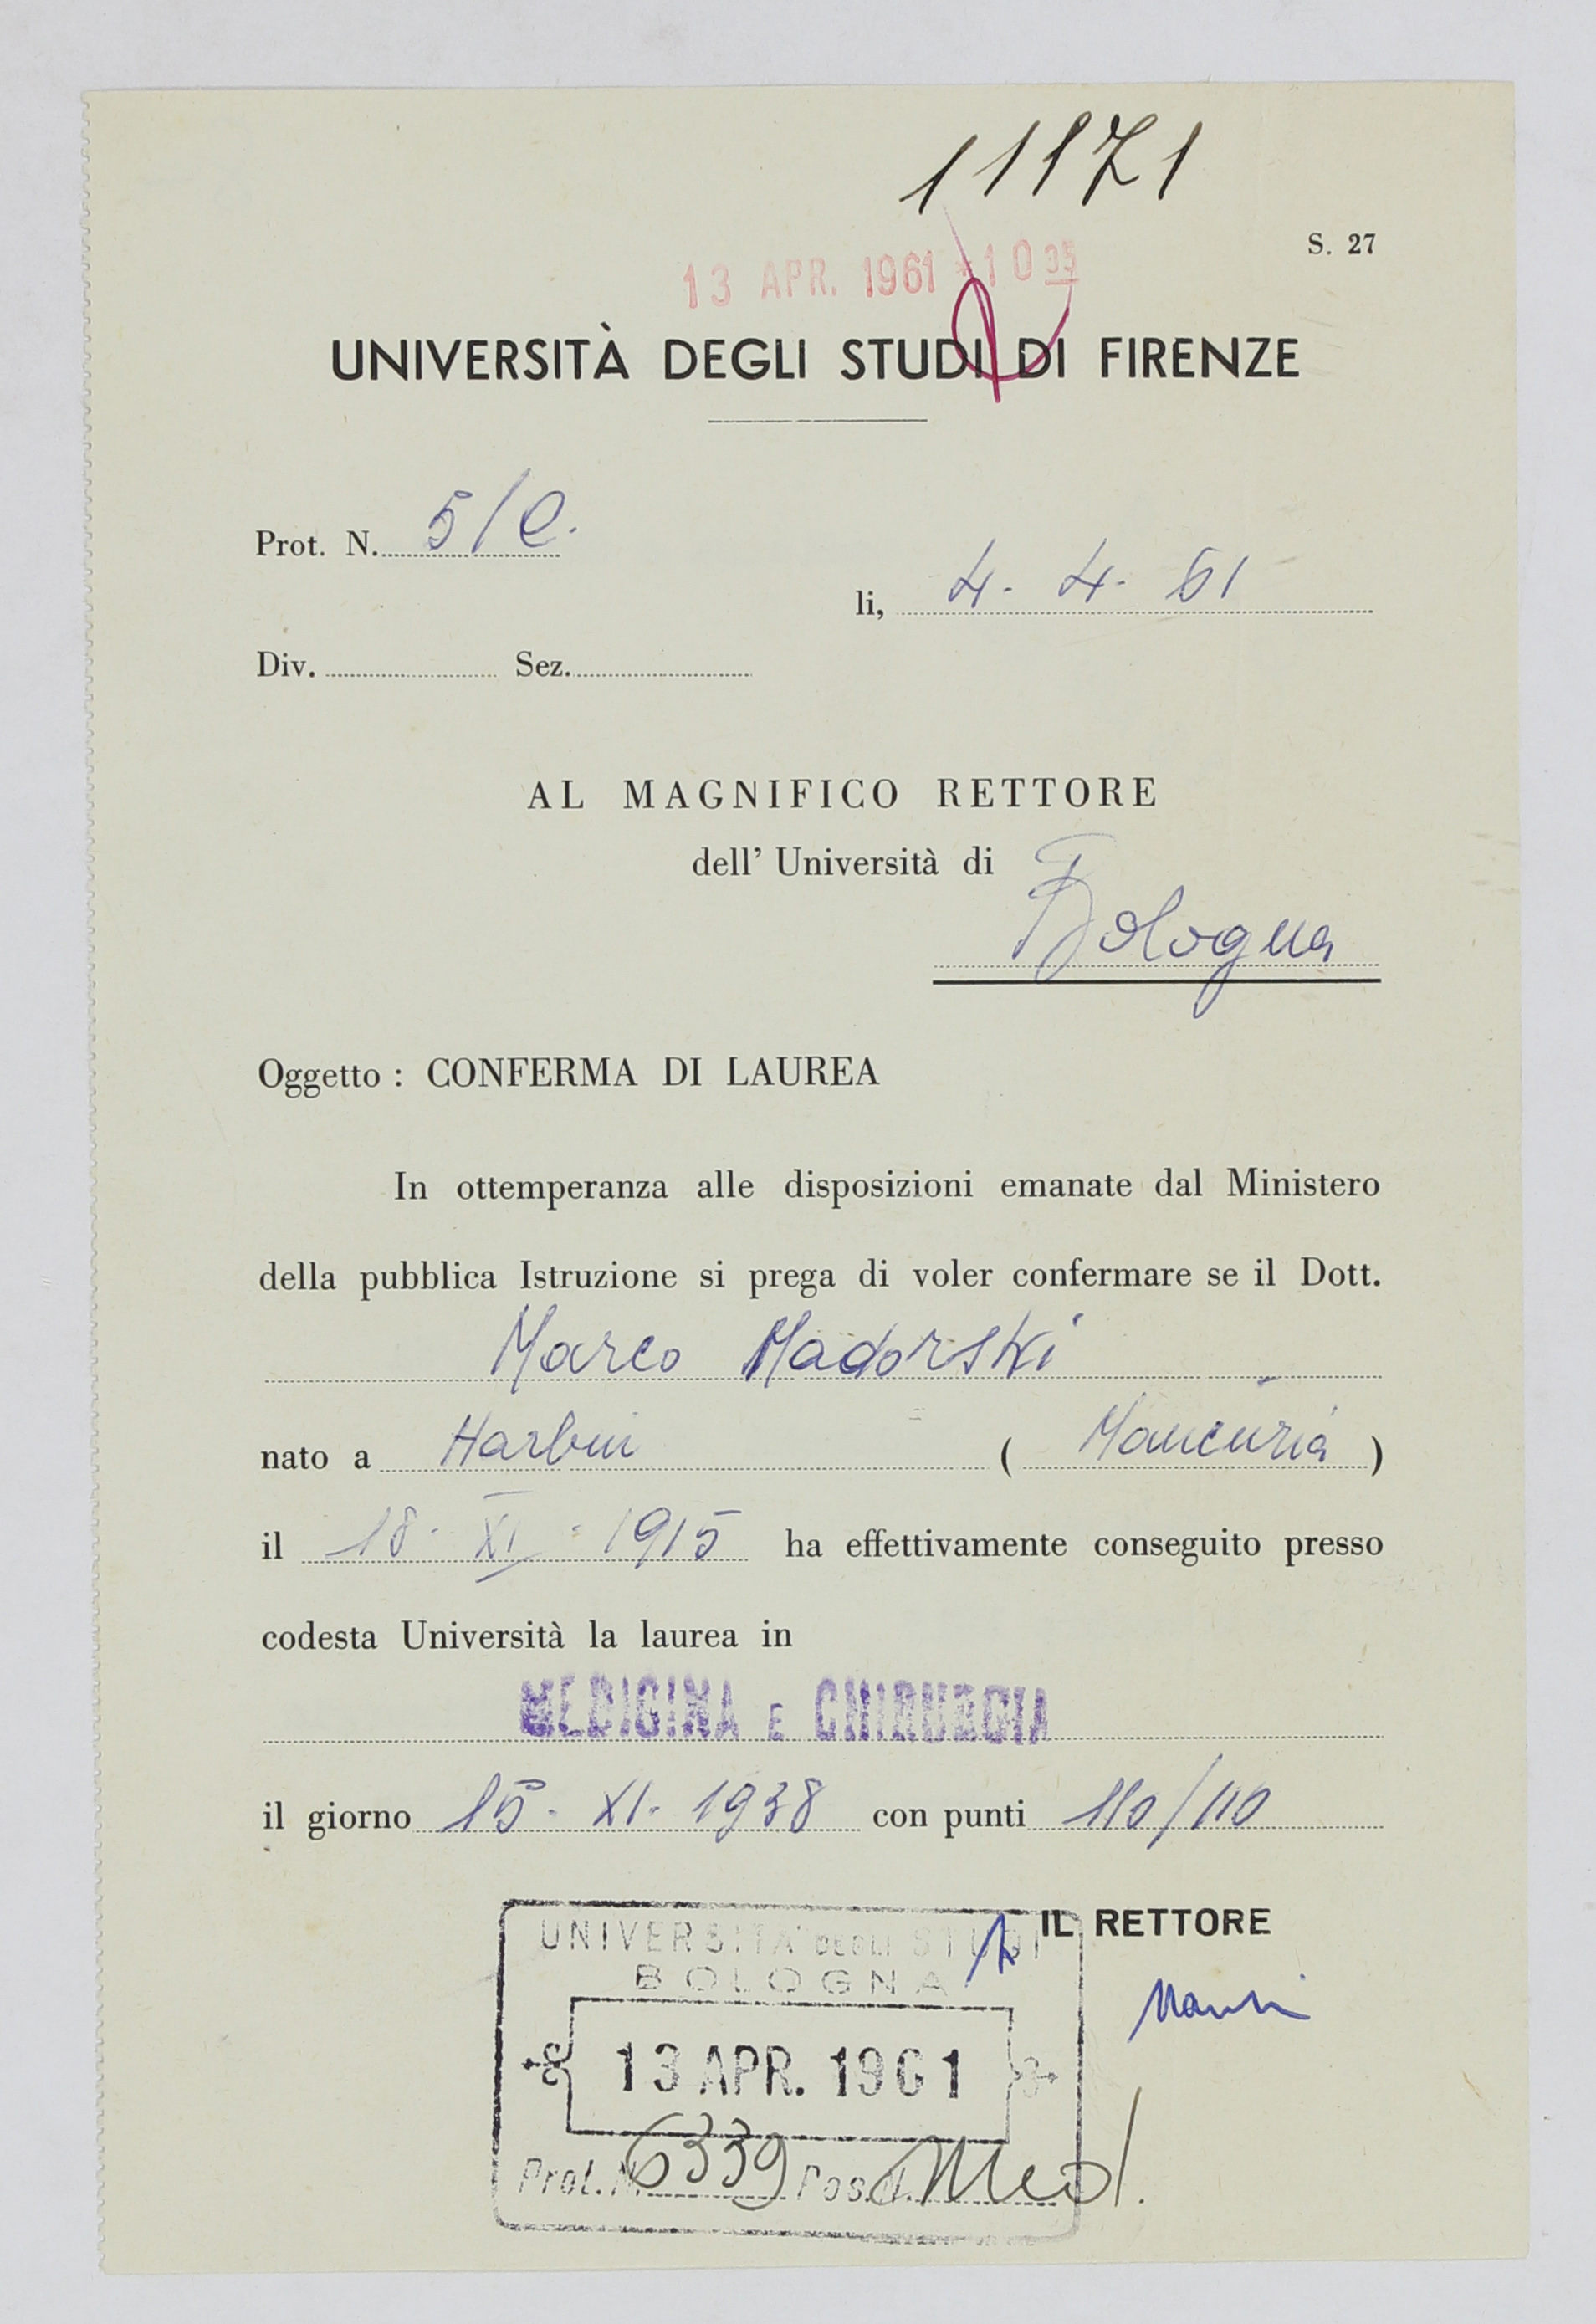 11171
S. 27
13 APR. 1961 * 10 35
UNIVERSITÀ DEGLI STUDI DI FIRENZE
Prot. N. 5/C.
li, 4. 4. 61
Div. Sez.
AL MAGNIFICO RETTORE
dell' Università di
Bologna
Oggetto : CONFERMA DI LAUREA
In ottemperanza alle disposizioni emanate dal Ministero
della pubblica Istruzione si prega di voler confermare se il Dott.
Marco Madorski
nato a Harbin ( Manciuria )
il 18 - XI - 1915 ha effettivamente conseguito presso
codesta Università la laurea in
MEDICINA E CHIRURGIA
il giorno 15 - XI - 1938 con punti 110/110
IL RETTORE
UNIVERSITA' DEGLI STUDI
BOLOGNA
13 APR. 1961
Prot. N. 6339 Pos. Med.